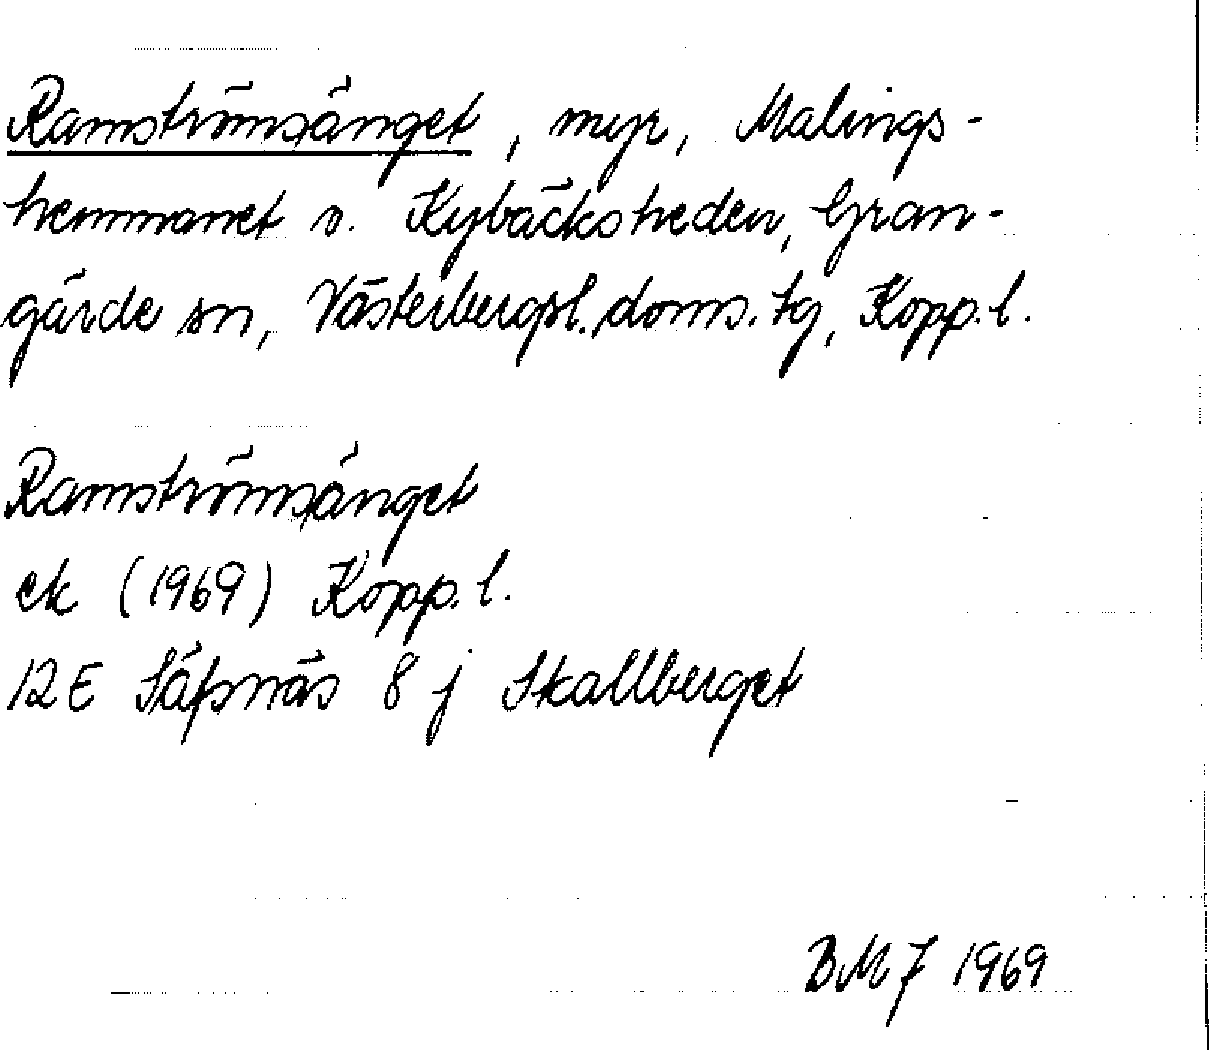 Ramströmsänget, myr, Malings-
hemmanet o. Kybäcksheden, Gran-
gärde sn, Västerbergsl. doms. tg, Kopp. l.
Ramströmsänget
ek (1969) Kopp. l.
12E Säfsnäs 8 j Skallberget
BMF 1969